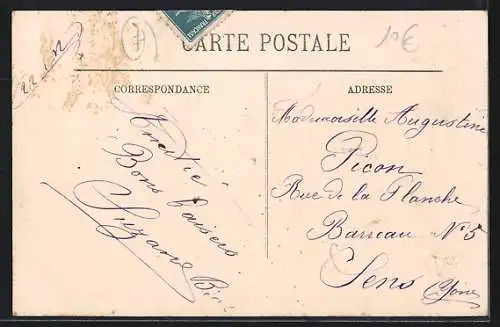 10€
CARTE POSTALE
CORRESPONDANCE
ADRESSE
Amitié
Bons baisers
Suzanne
Mademoiselle Augustine
Picon
Rue de la Planche
Barreau N° 5
Sens (Yonne)